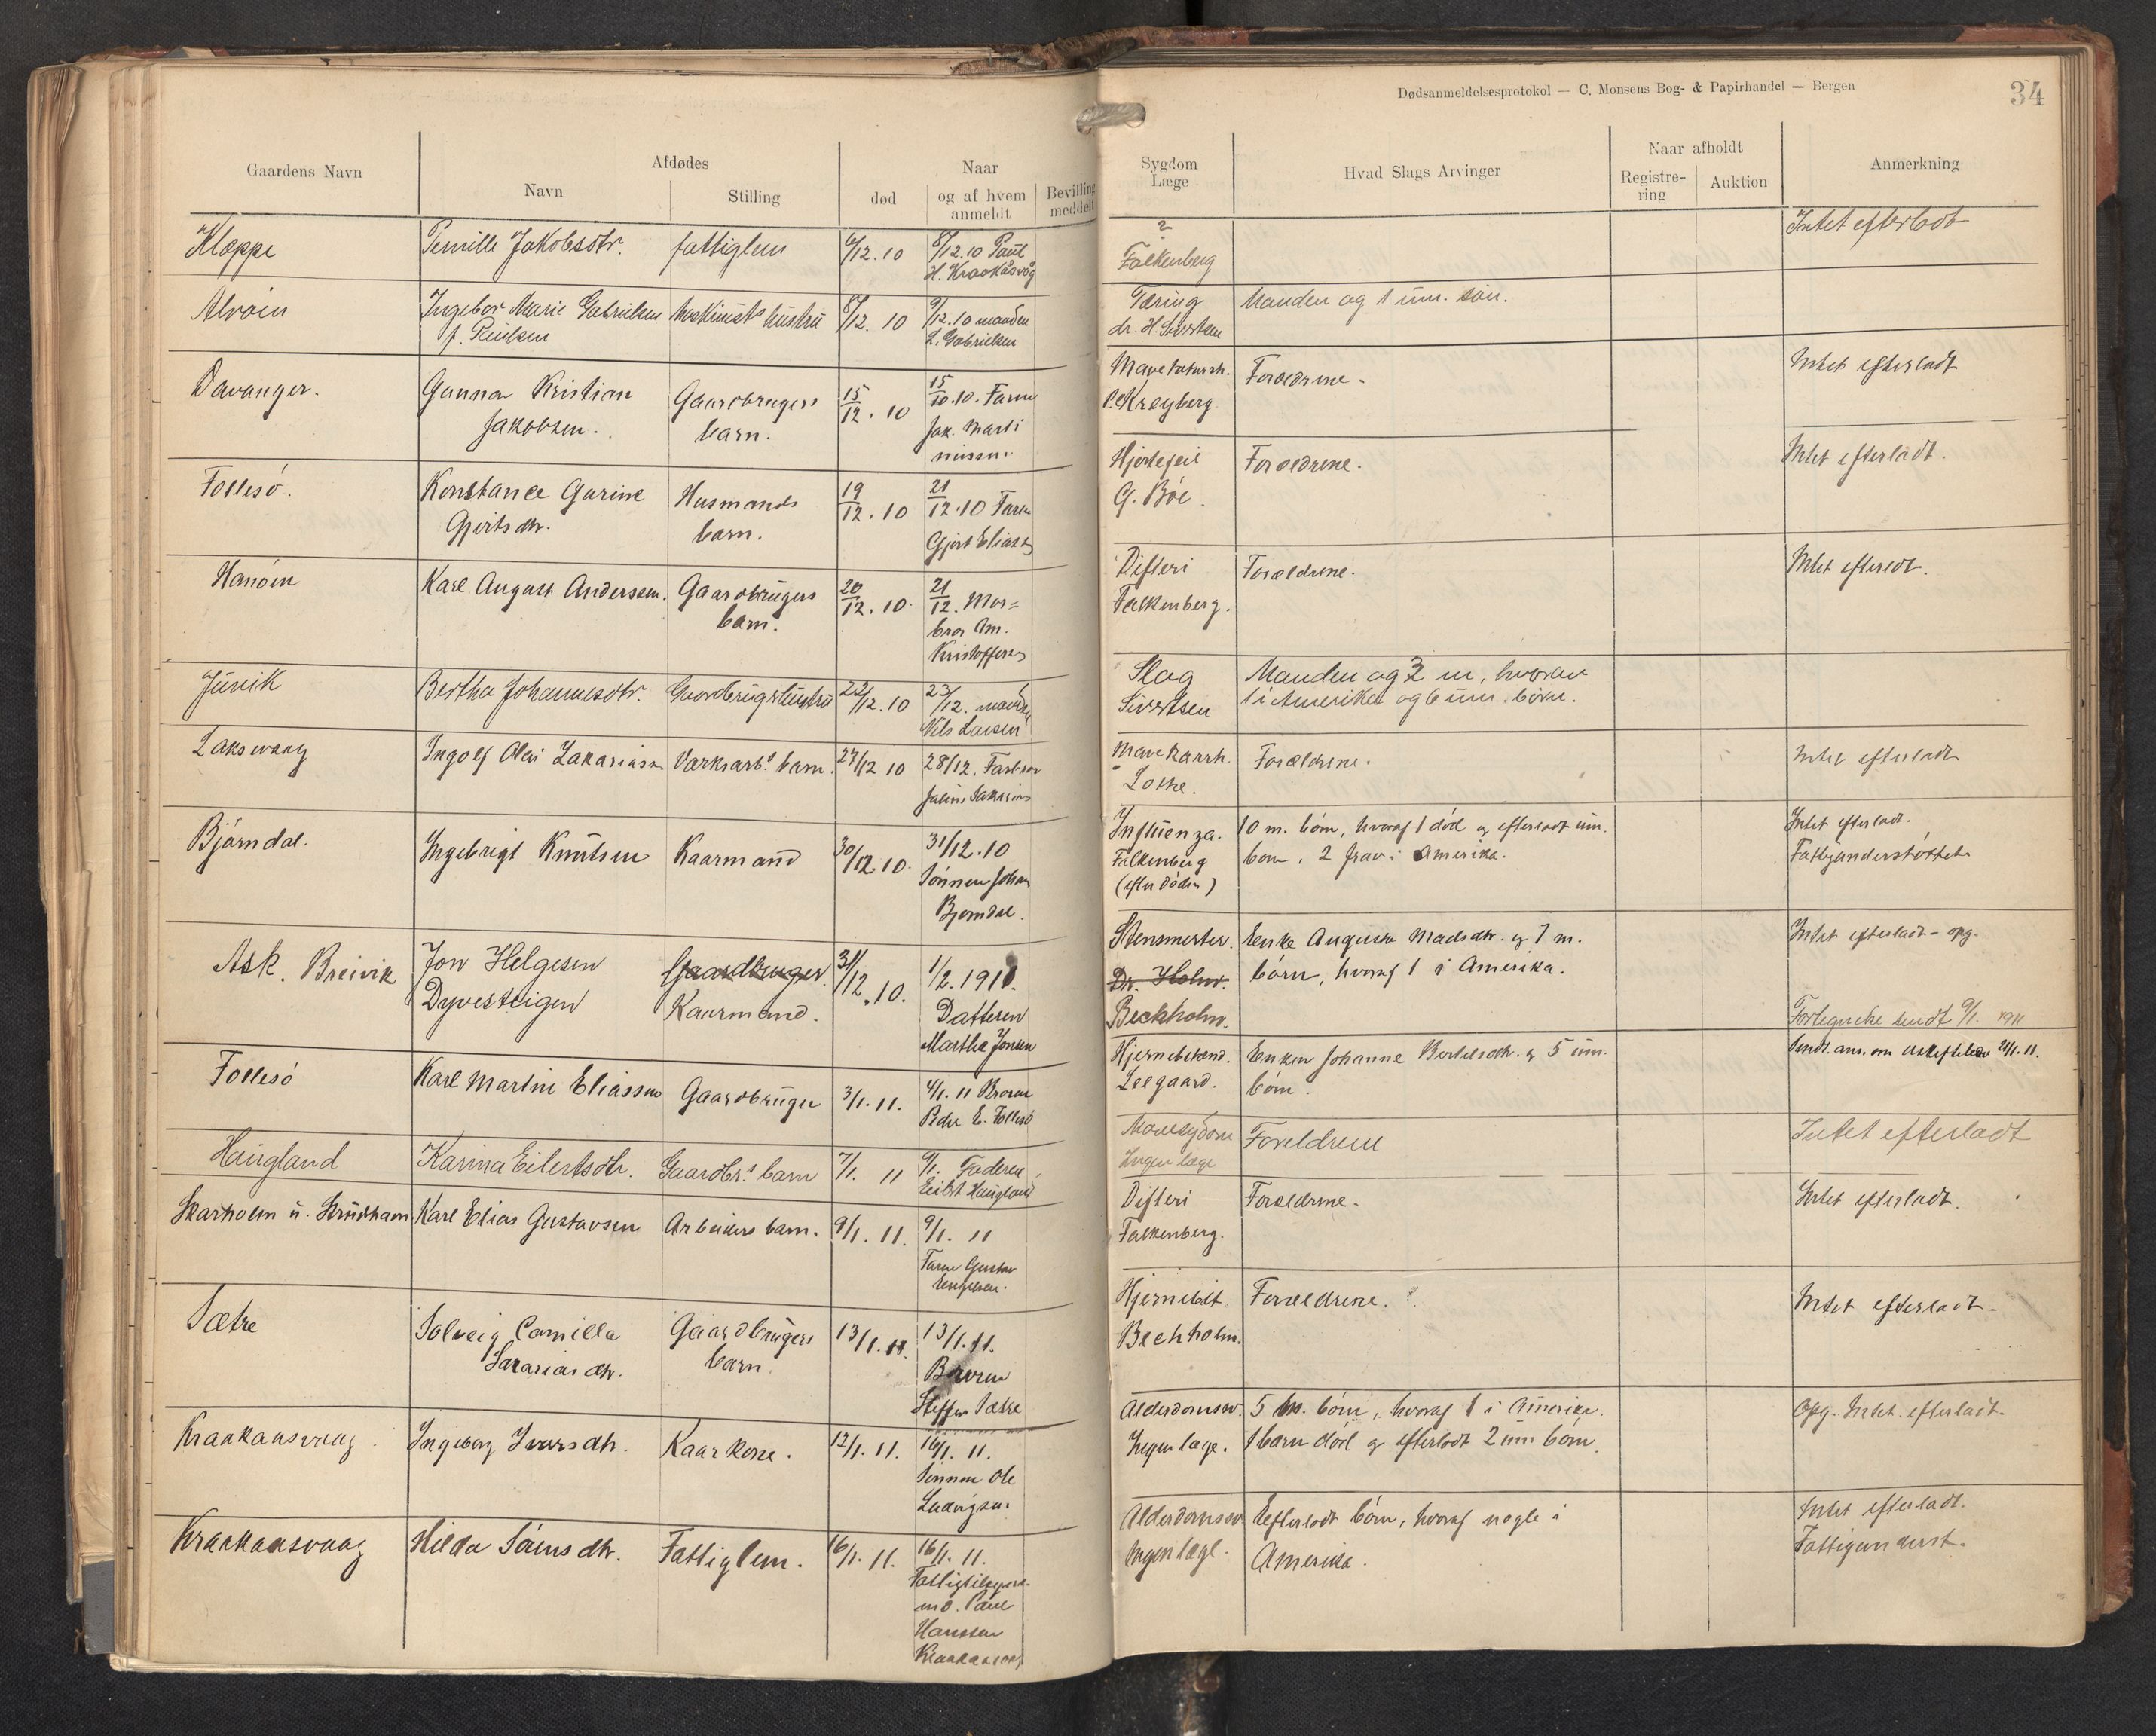 Dødsanmeldelsesprotokol — C. Monsens Bog- & Papirhandel — Bergen
34
Gaardens Navn
Afdødes
Navn
Stilling
død
Naar
og af hvem
anmeldt
Bevilling
meddelt
Sygdom
Læge
Hvad Slags Arvinger
Naar afholdt
Registre-
ring
Auktion
Anmerkning
Kleppe
Pernille Jakobsdtr.
fattiglem
6/12.10
8/12.10 Paul
H. Kraakåsvåg
?
Falkenberg
Intet efterladt
Alvøen
Ingebor Marie Gabrielsen
f. Paulsen
Maskinists hustru
8/12. 10
9/12.10 manden
L. Gabrielsen
Tæring
dr. H. Sivertsen
Manden og 1 um. søn.
Davanger.
Gunnar Kristian
Jakobsen.
Gaardbrugers
barn.
15/12. 10
15/10.10. Faren
Jak. Marti
nussen.
Mavekatarrh.
Kreyberg.
Forældrene.
Intet efterladt
Follesø.
Konstance Gurine
Gjertsdtr.
Husmands
barn.
19/12. 10
21/12.10 Faren
Gjert Eliass
Hjertefeil
G. Bøe.
Forældrene.
Intet efterladt.
Hanøen
Karl August Anderssen.
Gaardbrugers
barn.
20/12. 10.
21/12. Mor=
bror Am.
Kristoffers
Difteri
Falkenberg.
Forældrene.
Intet efterladt.
Juvik
Bertha Johannesdtr.
Gaardbrugrhustru
22/12.10
23/12. manden
Nils Larsen
Slag
Sivertsen
Manden og 3 m, hvoraf
1 i Amerika og 6 um. børn.
Laksevaag
Ingolf Olai Zakariass
Værksarb.s barn.
27/12 10
28/12. Farbror
Mavekatarrh.
Lothe.
Forældrene.
Intet efterladt
Bjørndal.
Ingebrigt Knutsen
Kaarmand
30/12.10.
31/12.10
Sønnen Johan
Bjørndal.
Influenza.
Falkenberg
(efter døden)
10 m. børn, hvoraf 1 død og efterladt um.
børn, 2 frav. i Amerika.
Intet efterladt.
Fattigunderstøttet.
Ask. Breivik
Jon Helgesen
Dyvesteigen
Gaardbruger
Kaarmand.
31/12.10.
1/2.1911.
Datteren
Marthe Jonsen
Stensmerter.
Dr. Holm.
Beckholm.
Enke Augusta Madsdtr. og 7 m.
børn, hvoraf 1 i Amerika.
Intet efterladt - opg.
Fortegnelse sendt 9/1. 1911
Follesø
Karl Martin Eliassen
Gaardbruger
3/1. 11.
4/1. 11 Broren
Peder E. Follesø
Hjernebetænd.
Leegaard.
Enken Johanne Bertelsdtr. og 5 um.
børn.
Sendt. ans. om uskiftebev 21/1. 11.
Haugland
Karina Eilertsdtr.
Gaardbr.s barn
7/1. 11
9/1. Faderen
Eilert Haugland
Mavesygdom
Ingen læge
Foreldrene
Intet efterladt
Skarholm u. Strudshavn
Karl Elias Gustavsen
Arbeiders barn.
9/1. 11.
9/1. 11
Faren Gustav
Engelsen.
Difteri
Falkenberg.
Forældrene.
Intet efterladt.
Sætre
Solveig Camilla
Sakariasdtr.
Gaardbrugers
barn.
13/1.11.
13/1.11.
Broren
Steffen Sætre
Hjernebet.
Beckholm.
Forældrene.
Intet efterladt.
Kraakaasvaag.
Ingeborg Iversdtr.
Kaarkone.
12/1. 11.
16/1. 11.
Sønnen Ole
Ludvigsen.
Alderdomssv.
Ingen læge.
5 m. børn, hvoraf 1 i Amerika.
1 barn død og efterladt 2 um børn.
Opg. Intet efterladt.
Kraakaasvaag
Hilda Sørensdtr.
Fattiglem.
16/1. 11.
16/1. 11.
Fattigtilsyns-
md. Paul
Hanssen
Kraakaasvaag
Alderdomssv
Ingen læge.
Efterladt børn, hvoraf nogle i
Amerika.
Intet efterladt.
Fattigunderst.